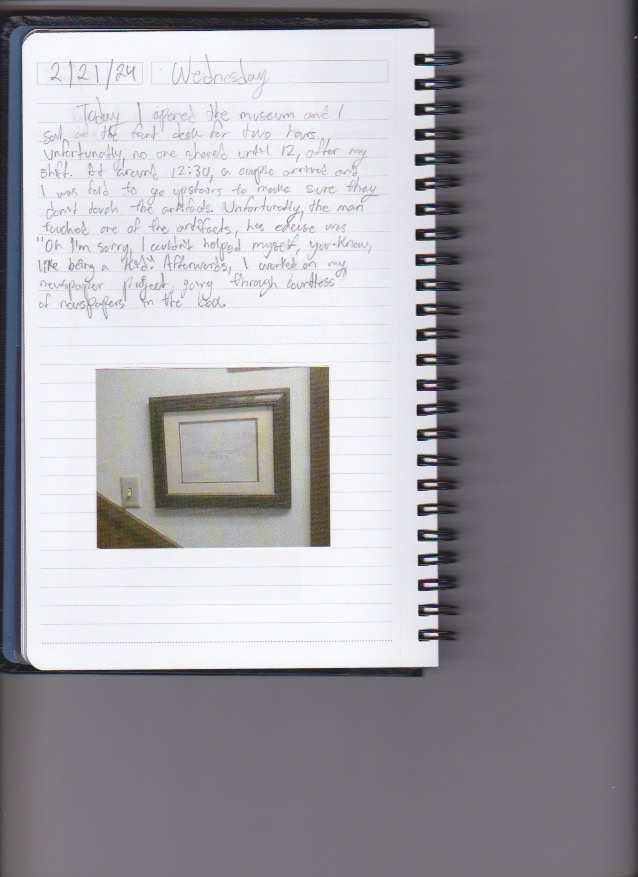 2/21/24 Wednesday
Today I opened the museum and I
sat at the front desk for two hours.
Unfortunatly, no one showed until 12, after my
shift. At around 12:30, a couple arrived and
I was told to go upstairs to make sure they
don't touch the artifacts. Unfortunatly, the man
touched one of the artifacts, his excuse was
"Oh I'm sorry, I couldn't helped myself, you know,
like being a kid." Afterwards, I worked on my
newspaper project, going through countless
of newspapers in the